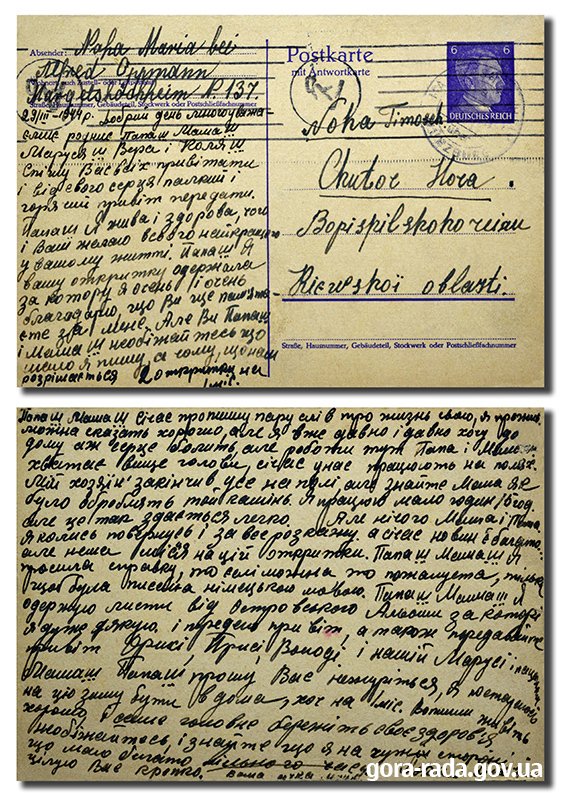 Absender: Noha Maria bei
Alfred Oppmann
P 137
Straße, Hausnummer, Gebäudeteil, Stockwerk oder Postschließfachnummer
29/III-1944 р. Добрий день
Папаш Мамаш
Маруся й Вєра і Коля й
Спішу Вас всіх привітати
і від щирого серця палкий і
гарячий привіт передати.
Папаш Я жива і здорова, чого
і Вам желаю всього найкращого
у вашому житті. Папаш Я
вашу открытку одержала
за котору я осень і очень
благодарю, що Ви ще
єте за мене. Але Ви Папаш
і Мамаш необіжайтесь що
мало Я пишу, а чому, що нам
розрішається 2 открытки на
міс.
Postkarte
mit Antwortkarte
6 6
DEUTSCHES REICH
Noha Timosch
Chutor Hora.
Bopispilskoho
Kiewskoï oblasti.
Straße, Hausnummer, Gebäudeteil, Stockwerk oder Postschließfachnummer
Папаш Мамаш січас пропишу пару слів про жизнь свою, я
можна сказать хорошо, але я вже давно і давно хочу до
дому аж серце болить, але роботи тут Папа і Мамо
хватає вище голови, січас у нас працюють на полях.
Мій хозяїн закінчив усе на полі, але знайте Мама як
було обробляти той камінь. Я працюю мало годин 15 год
але це так здається легко. Але нічого Мама і Папа,
я колись повернусь і за все розкажу, а січас новин є багато
але неша місця на цій открытки. Папаш Мамаш Я
просила справку, то єслі можна то пожалуста, тілько
щоб була писана німецькою мовою. Папаш Мамаш Я
одержую листи від Островського за которі
я дуже дякую і передаю привіт, а також передавайте
привіт Орисі, Присі, Володі і нашій Марусі і
Мамаш Папаш прошу Вас нежуріться, Я
на цю зиму бути вдома, хоч на 1 міс.
хорошо і саме головне бережіть своє здоров'я
необіжайтесь, і знайте що я на чужій
що мало багато
цілую Вас крепко. ваша
gora-rada.gov.ua